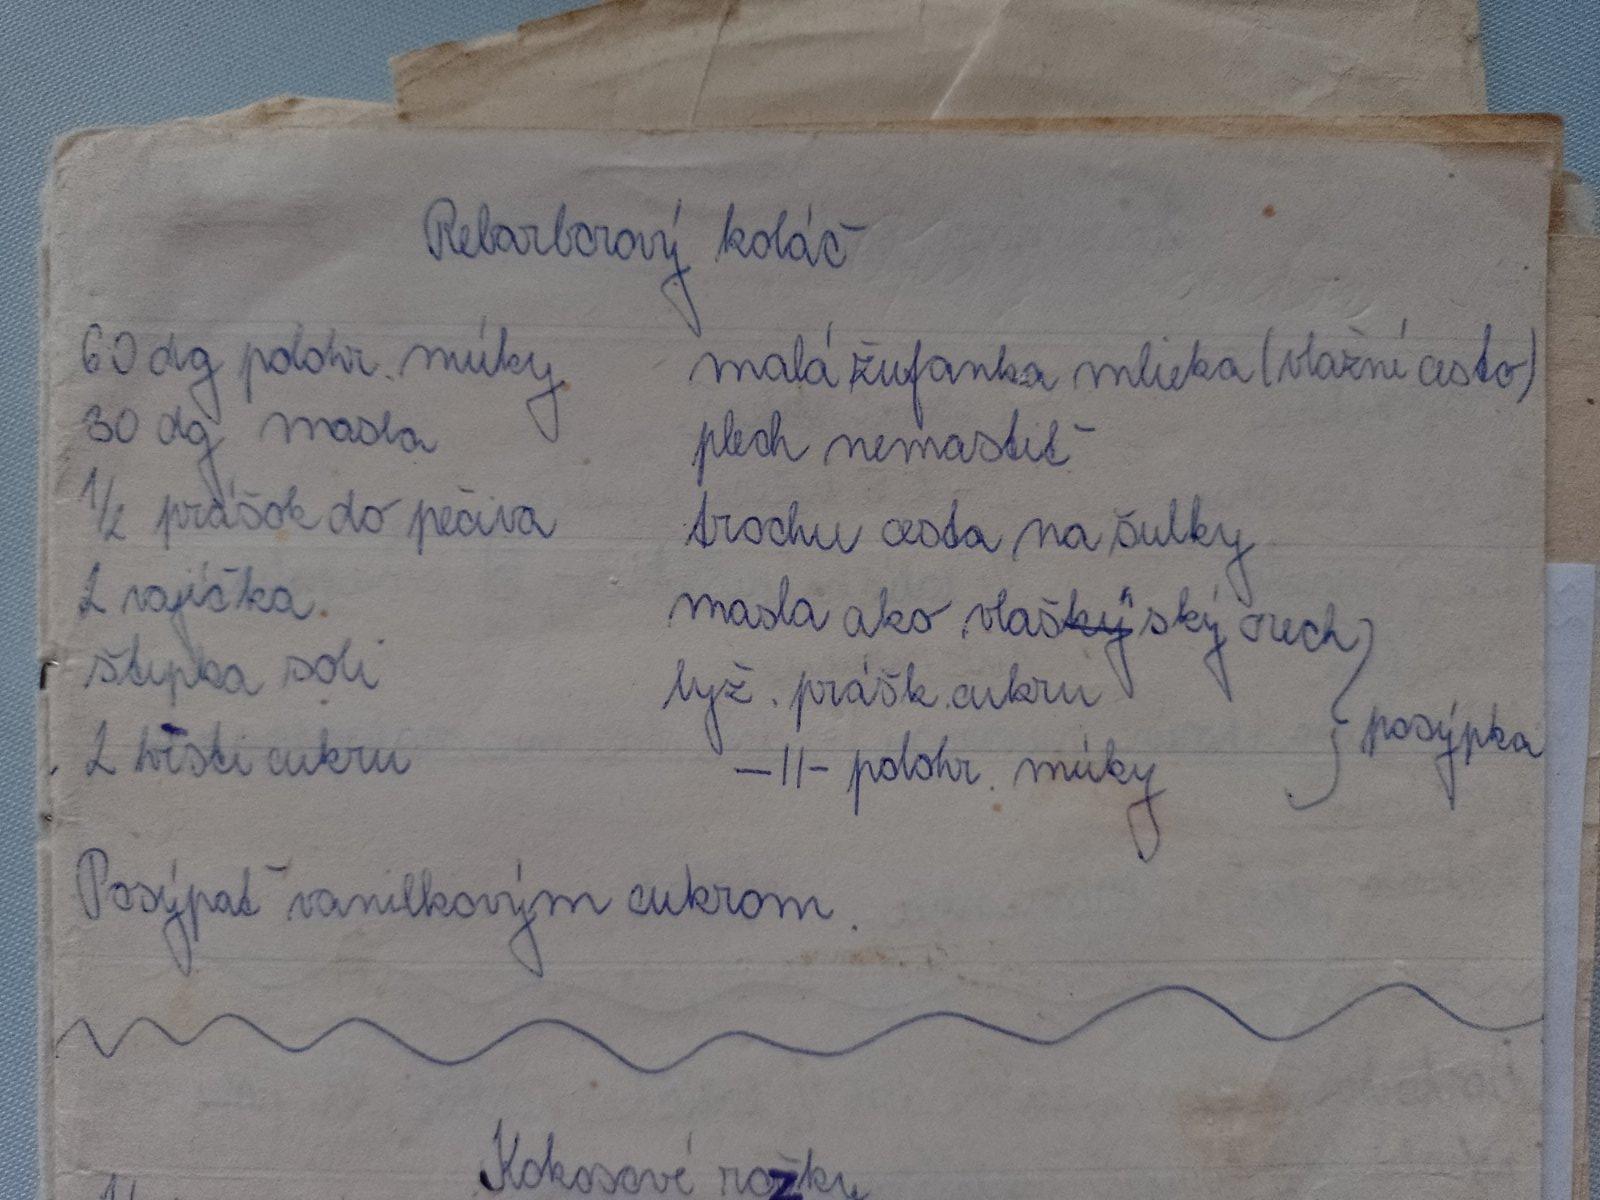 Rebarborový koláč
60 dg polohr. múky
30 dg masla
1/2 prášok do pečiva
2 vajíčka.
štipka soli
2 hŕsti cukru
malá žufanka mlieka (vlažní cesto)
plech nemastiť
trochu cesta na šulky
masla ako vlašský orech
lyž. prášk. cukru
—11— polohr. múky
posýpka
Posýpať vanilkovým cukrom.
Kokosové rožky